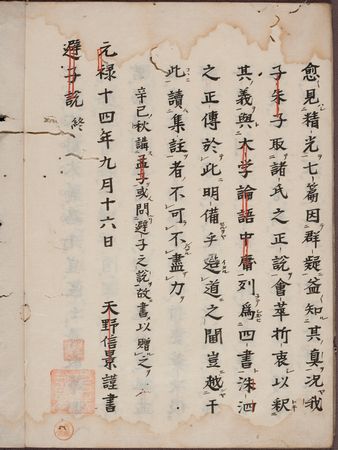 愈見精光七篇因群疑益知其真況我
子朱子取諸氏之正說會萃折衷以釈
其義與大学論語中庸列為四書洙泗
之正傳於此明備乎造道之間豈越于
此讀集註者不可不盡力
辛巳秋講孟子或問避子之説故書以贈之
元禄十四年九月十六日 天野信景謹書
避子説 終